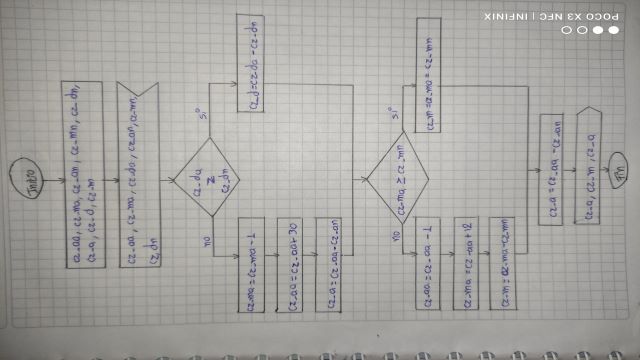 Inicio
cz-aa, cz-ma, cz-an, cz-mn, cz-dn,
cz-a, cz-d, cz-m
cz-aa, cz-ma, cz-da, cz-an, cz-mn,
cz-dn
cz-da
≥
cz-dn
no
si
cz-ma = cz-ma - 1
cz-d = cz-da - cz-dn
cz-aa = cz-aa + 30
cz-a = cz-aa - cz-an
cz-ma ≥ cz-mn
no
si
cz-aa = cz-aa - 1
cz-m = cz-ma = cz-mn
cz-ma = cz-aa + 12
cz-m = cz-ma - cz-mn
cz-a = cz-aa - cz-an
cz-a, cz-m, cz-a
Fin
POCO X3 NFC | INFINIX